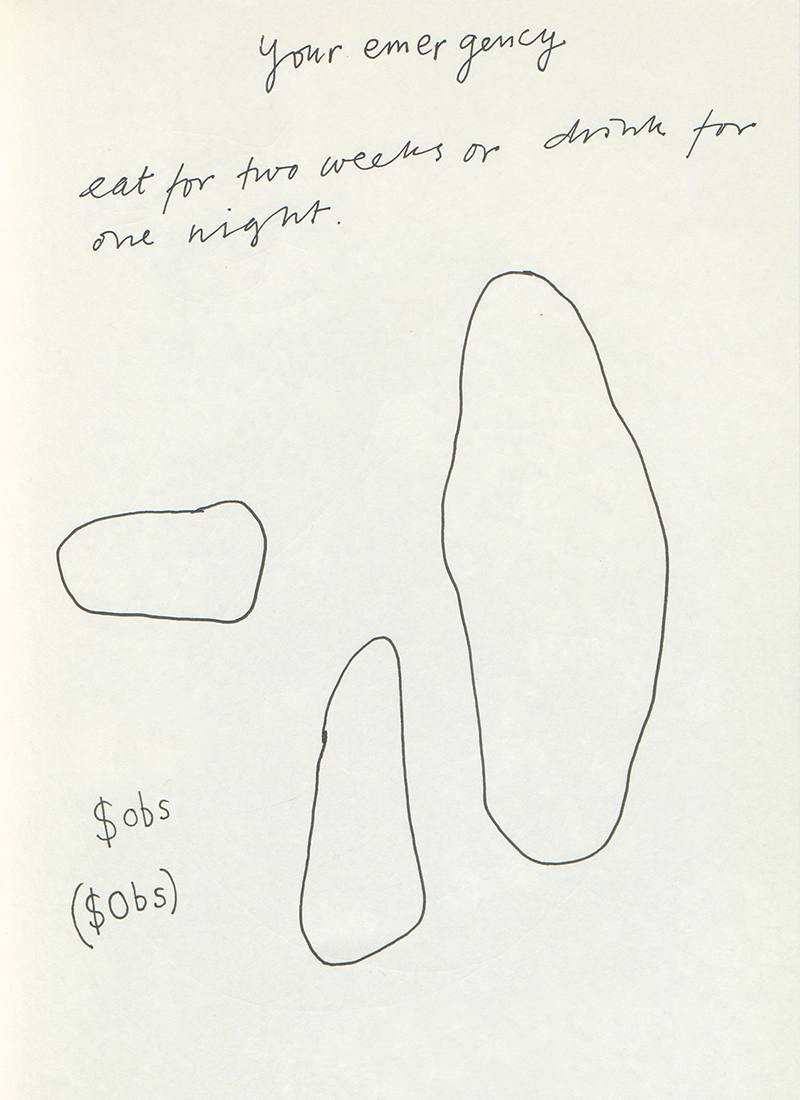 Your emergency
eat for two weeks or drink for
one night.
$obs
($Obs)